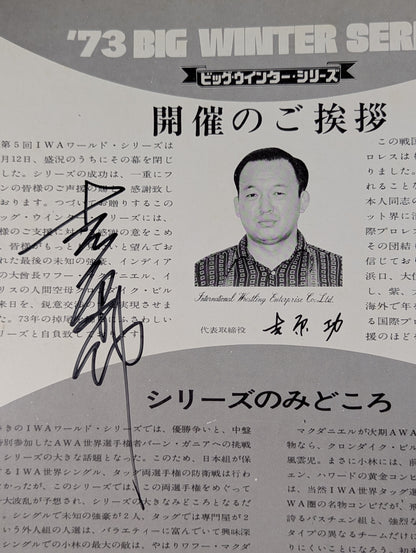 '73 BIG WINTER SERI
ビッグ・ウインター・シリーズ
開催のご挨拶
第5回IWAワールド・シリーズは
月12日、盛況のうちにその幕を閉じ
した。シリーズの成功は、一重にフ
ンの皆様のご声援の
感謝致し
おります。つづいてお贈りするこの
ッグ・ウインター・シリーズには、
様のご支援に対する感謝の意をこめ
皆様がもっとも
いと望んでお
れた最後の未知の強豪、インディア
の大酋長ワフー・
ニエル、イ
リスの人間空母
イク・ビル
来日を、鋭意交渉の
実現させま
た。73年の掉尾
ふさわしい
リーズと自負致し
す。
International Wrestling Enterprise Co. Ltd.
代表取締役 吉原 功
この戦国
プロレスは
りました。
ことこれま
本人同志の
ット界に
際プロレス
その団結
信じており
浜口、大
剛、紫、
海外で年
る国際プロ
援のほどを
吉原功
シリーズのみどころ
きのIWAワールド・シリーズでは、優勝争いと、中盤
特別参加したAWA世界選手権者バーン・ガニアへの挑戦
シリーズの大きな話題となった。このため、日本組が保
するIWA世界シングル、タッグ両選手権の防衛戦は行わ
なかったが、このシリーズでは、この両選手権をめぐって
大波乱が予想され、シリーズの大きなみどころとなるだ
う。シングルで未知の強豪が2人、タッグでは専門屋が2
いう外人組の人選は、バラエティーに富んでいて興味深
シングルでの小林の最大の敵は、やはりワフー・マクダ
マクダニエルが次期AWA
物なら、クロンダイク・ビル
風雲児。まさに小林には、前
ェン、ハワードの黄金コンビ
は、当然IWA世界タッグ選
WA圏の名物コンビだが、飛
誇るバスチェン組と、強烈な
タイプの異なるチームだけ